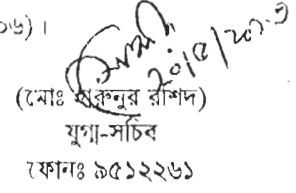 ০৬)।
২০/৫/২০
(মোঃ হারুনুর রশিদ)
যুগ্ম-সচিব
ফোনঃ ৯৫১২২৬১